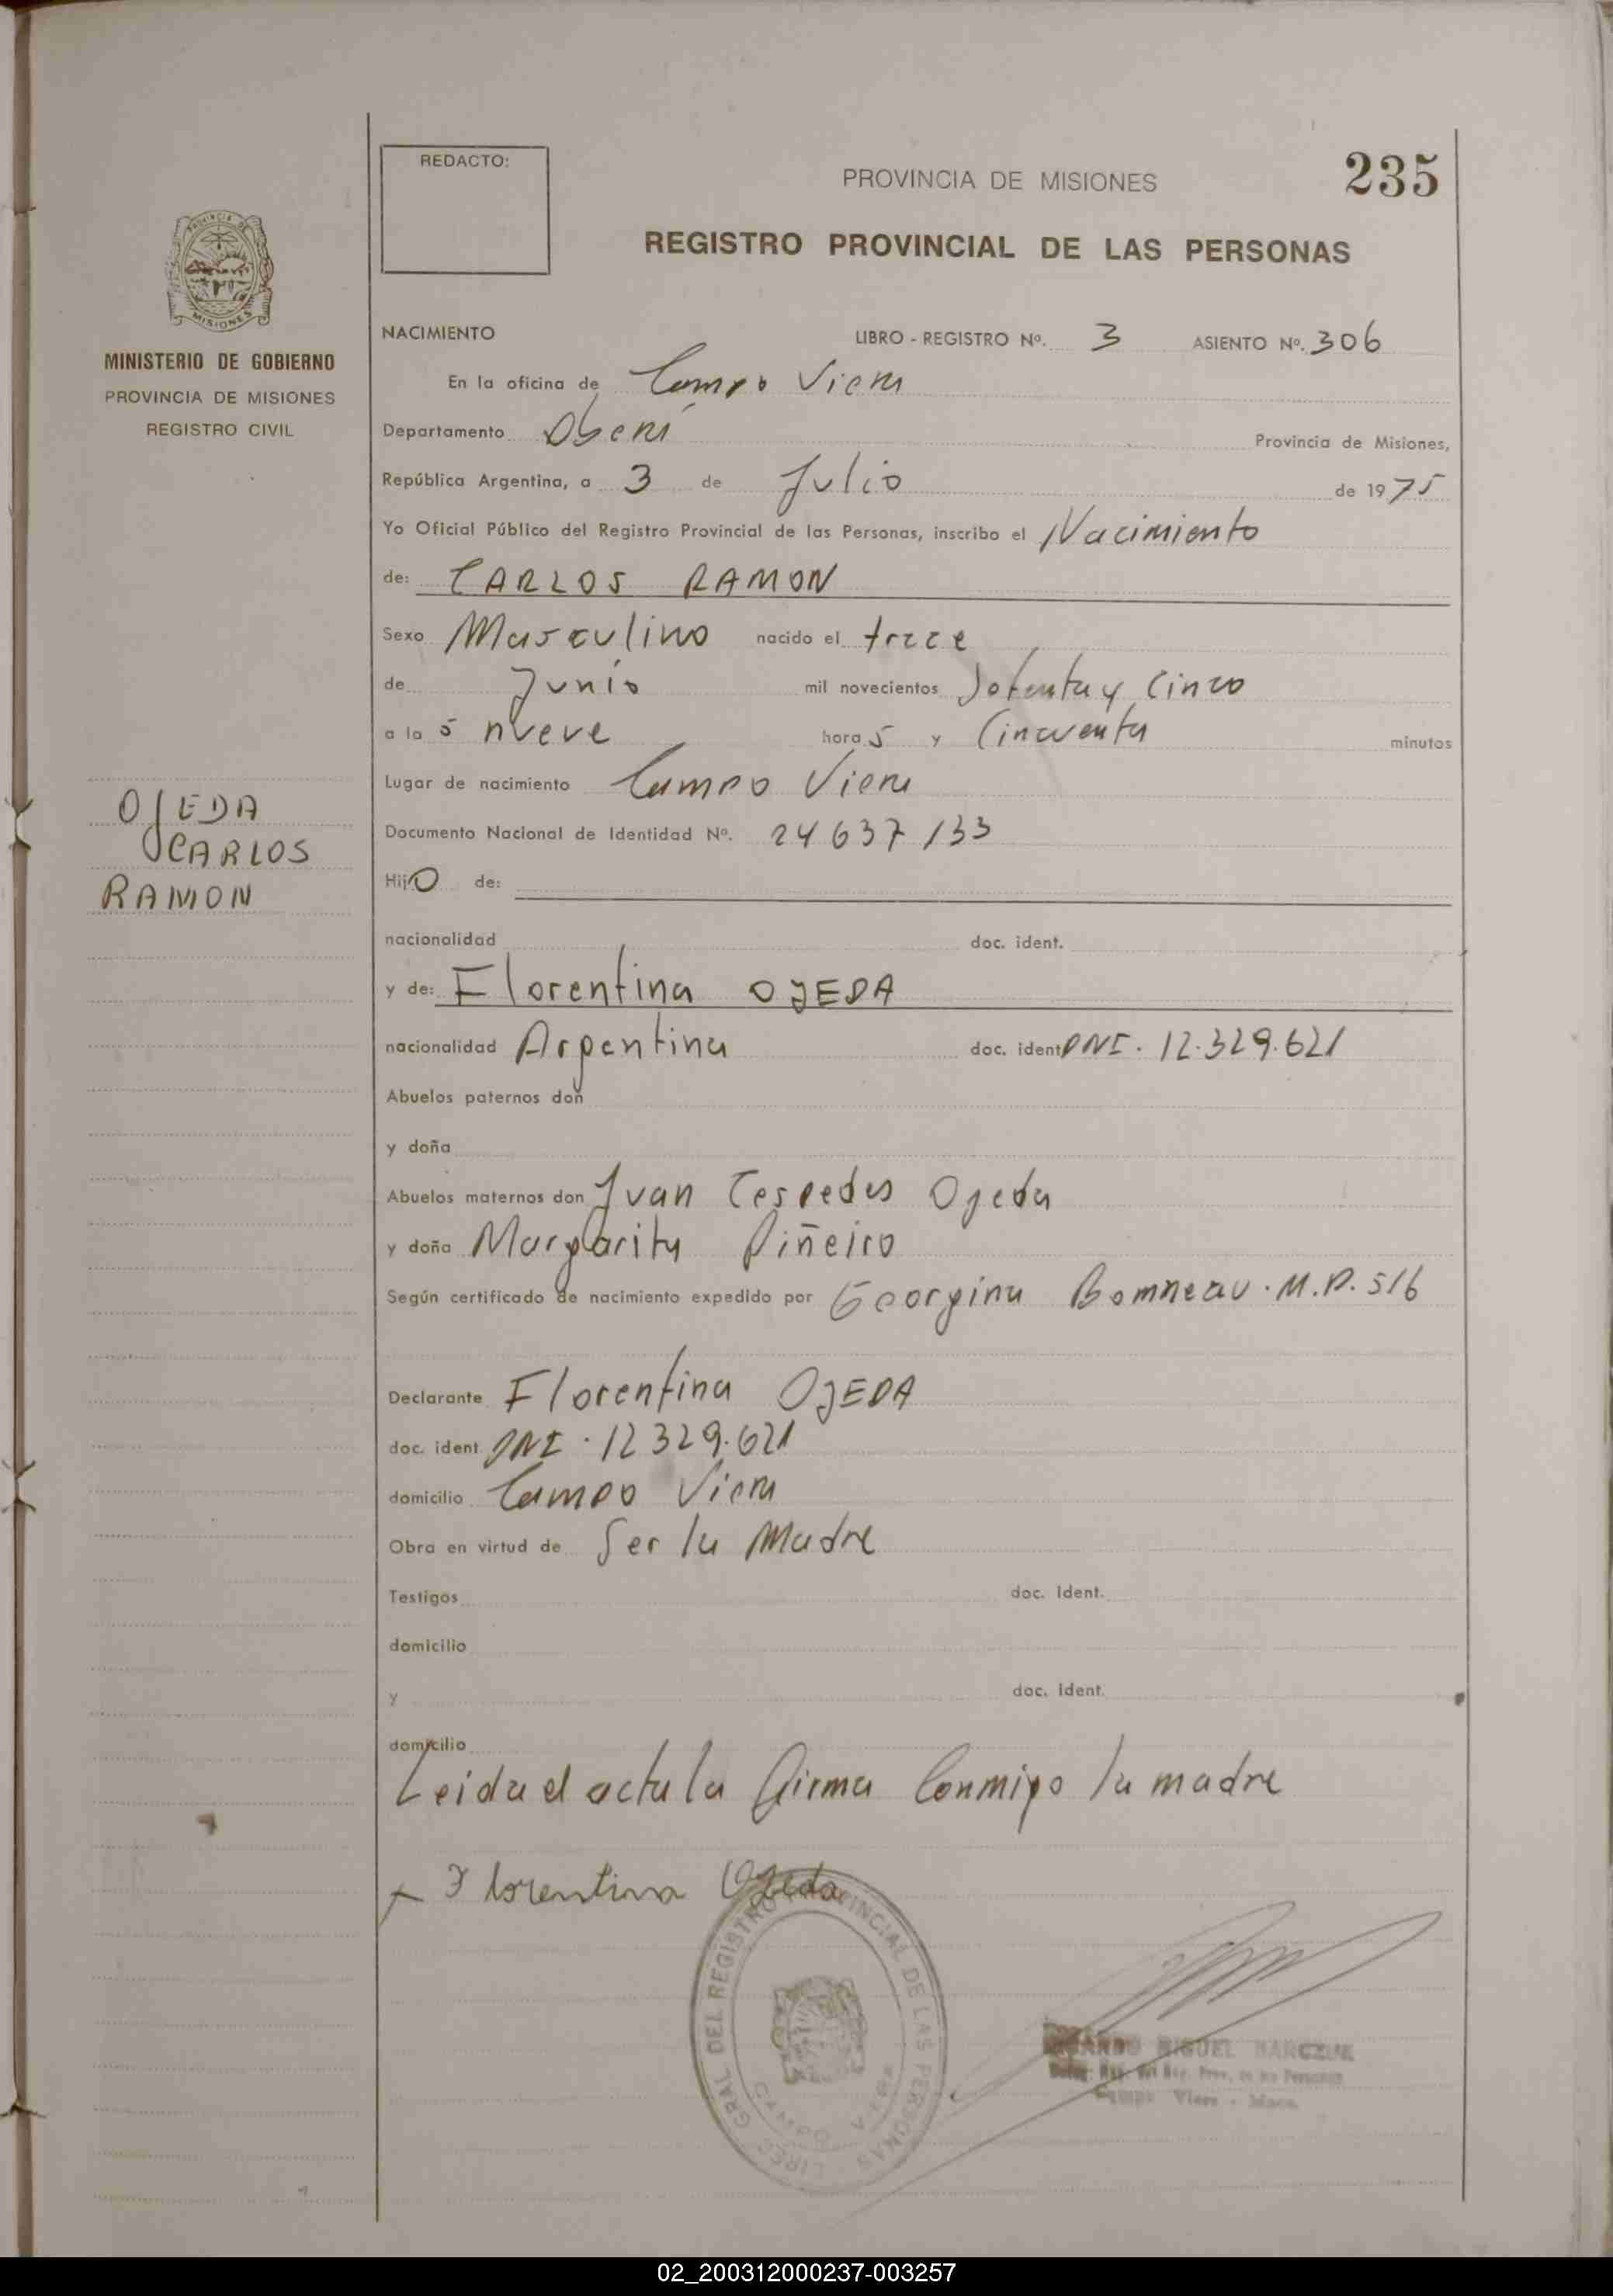 REDACTO:
PROVINCIA DE MISIONES
235
REGISTRO PROVINCIAL DE LAS PERSONAS
PROVINCIA DE
MISIONES
MINISTERIO DE GOBIERNO
PROVINCIA DE MISIONES
REGISTRO CIVIL
OJEDA
CARLOS
RAMON
NACIMIENTO LIBRO - REGISTRO Nº. 3 ASIENTO Nº. 306
En la oficina de Campo Viera
Departamento Oberá Provincia de Misiones,
República Argentina, a 3 de Julio de 1975
Yo Oficial Público del Registro Provincial de las Personas, inscribo el Nacimiento
de: CARLOS RAMON
Sexo Masculino nacido el trece
de Junio mil novecientos Setenta y Cinco
a la s nueve hora s y Cincuenta minutos
Lugar de nacimiento Campo Viera
Documento Nacional de Identidad Nº. 24637133
Hijo de:
nacionalidad doc. ident.
y de: Florentina OJEDA
nacionalidad Argentina doc. ident DNI. 12.329.621
Abuelos paternos don
y doña
Abuelos maternos don Juan Cespedes Ojeda
y doña Margarita Piñeiro
Según certificado de nacimiento expedido por Georgina M.P. 516
Declarante Florentina OJEDA
doc. ident DNI. 12 329.621
domicilio Campo Viera
Obra en virtud de Ser la Madre
Testigos doc. ident.
domicilio
y doc. ident.
domicilio
Leida el acta la firma Conmigo la madre
Florentina Ojeda
GRAL DEL REGISTRO PROVINCIAL DE LAS PERSONAS
CAMPO VIERA
MIGUEL
Campo Viera - Mnes.
02_200312000237-003257